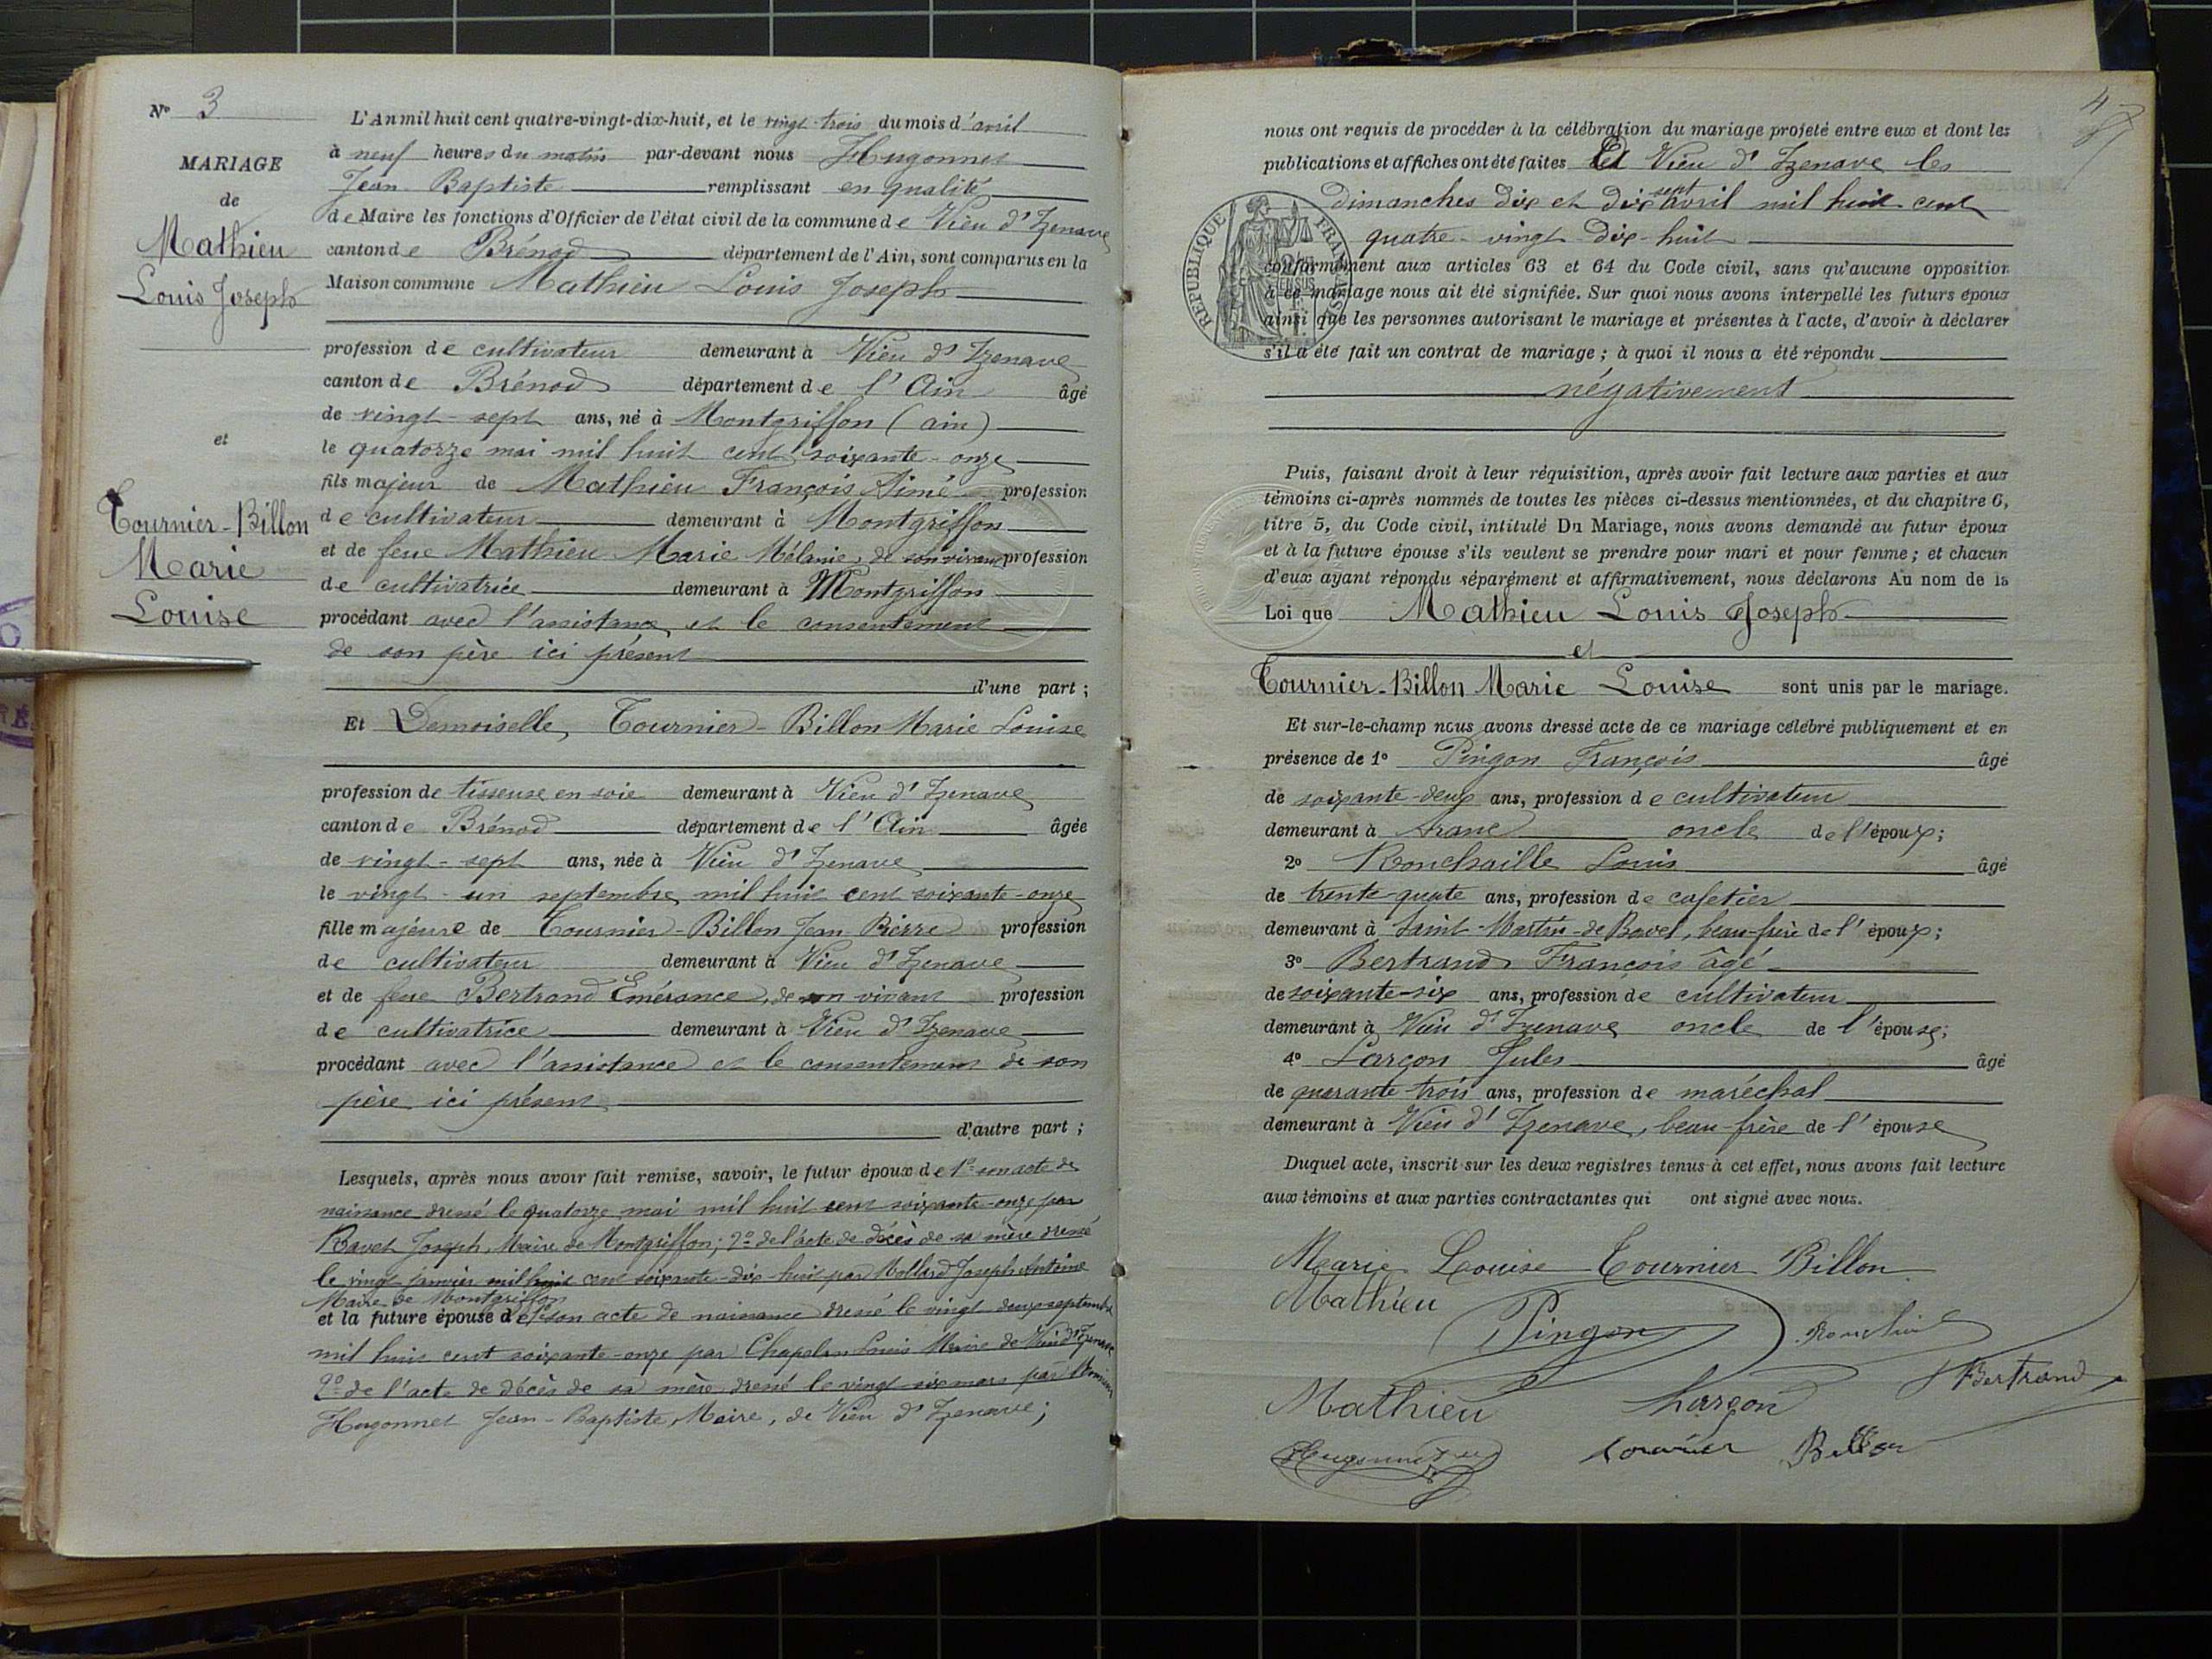 N° 3
MARIAGE
de
Mathieu
Louis Joseph
et
Tournier-Billon
Marie
Louise
L'An mil huit cent quatre-vingt-dix-huit, et le vingt-trois du mois d'avril
à neuf heures du matin par-devant nous Hugonnet
Jean-Baptiste remplissant en qualité
de Maire les fonctions d'Officier de l'état civil de la commune de Vieu d'Izenave
canton de Brénod département de l'Ain, sont comparus en la
Maison commune Mathieu Louis Joseph
profession de cultivateur demeurant à Vieu d'Izenave
canton de Brénod département de l'Ain âgé
de vingt-sept ans, né à Montgriffon (ain)
le quatorze mai mil huit cent soixante-onze
fils majeur de Mathieu François Aimé profession
de cultivateur demeurant à Montgriffon
et de feue Mathieu Marie Mélanie, de son vivant profession
de cultivatrice demeurant à Montgriffon
procédant avec l'assistance et le consentement
de son père ici présent
d'une part ;
Et Demoiselle, Tournier-Billon Marie Louise
profession de tisseuse en soie demeurant à Vieu d'Izenave
canton de Brénod département de l'Ain âgée
de vingt-sept ans, née à Vieu d'Izenave
le vingt-un septembre mil huit cent soixante-onze
fille majeure de Tournier-Billon Jean Pierre profession
de cultivateur demeurant à Vieu d'Izenave
et de feue Bertrand Emérance, de son vivant profession
de cultivatrice demeurant à Vieu d'Izenave
procédant avec l'assistance et le consentement de son
père ici présent
d'autre part ;
Lesquels, après nous avoir fait remise, savoir, le futur époux de 1° son acte de
naissance dressé le quatorze mai mil huit cent soixante-onze par
Ravet Joseph, Maire de Montgriffon; 2° de l'acte de décès de sa mère dressé
le vingt janvier mil huit cent soixante-dix-huit par Mollard Joseph Antoine
Maire de Montgriffon
et la future épouse de 1° son acte de naissance dressé le vingt-deux septembre
mil huit cent soixante-onze par Chapelan Louis Maire de Vieu d'Izenave
2° de l'acte de décès de sa mère dressé le vingt-six mars par
Hugonnet Jean-Baptiste, Maire, de Vieu d'Izenave;
4
nous ont requis de procéder à la célébration du mariage projeté entre eux et dont les
publications et affiches ont été faites Vieu d'Izenave les
dimanches dix et dix sept avril mil huit-cent
quatre-vingt-dix-huit
conformément aux articles 63 et 64 du Code civil, sans qu'aucune opposition
à ce mariage nous ait été signifiée. Sur quoi nous avons interpellé les futurs époux
ainsi que les personnes autorisant le mariage et présentes à l'acte, d'avoir à déclarer
s'il a été fait un contrat de mariage ; à quoi il nous a été répondu
négativement
RÉPUBLIQUE FRANÇAISE
Puis, faisant droit à leur réquisition, après avoir fait lecture aux parties et aux
témoins ci-après nommés de toutes les pièces ci-dessus mentionnées, et du chapitre 6,
titre 5, du Code civil, intitulé Du Mariage, nous avons demandé au futur époux
et à la future épouse s'ils veulent se prendre pour mari et pour femme ; et chacun
d'eux ayant répondu séparément et affirmativement, nous déclarons Au nom de la
Loi que Mathieu Louis Joseph
et
Tournier-Billon Marie Louise sont unis par le mariage.
Et sur-le-champ nous avons dressé acte de ce mariage célébré publiquement et en
présence de 1° Pingon François âgé
de soixante-deux ans, profession de cultivateur
demeurant à Aranc oncle de l'époux;
2° Ronchaille Louis âgé
de trente-quatre ans, profession de cafetier
demeurant à Saint-Martin-de-Bavel, beau-frère de l'époux;
3° Bertrand François âgé
de soixante-six ans, profession de cultivateur
demeurant à Vieu d'Izenave oncle de l'épouse;
4° Larçon Jules âgé
de quarante-trois ans, profession de maréchal
demeurant à Vieu d'Izenave, beau-frère de l'épouse
Duquel acte, inscrit sur les deux registres tenus à cet effet, nous avons fait lecture
aux témoins et aux parties contractantes qui ont signé avec nous.
Marie Louise Tournier Billon
Mathieu
Pingon
Bertrand
Mathieu
Larçon
Hugonnet
Tournier Billon